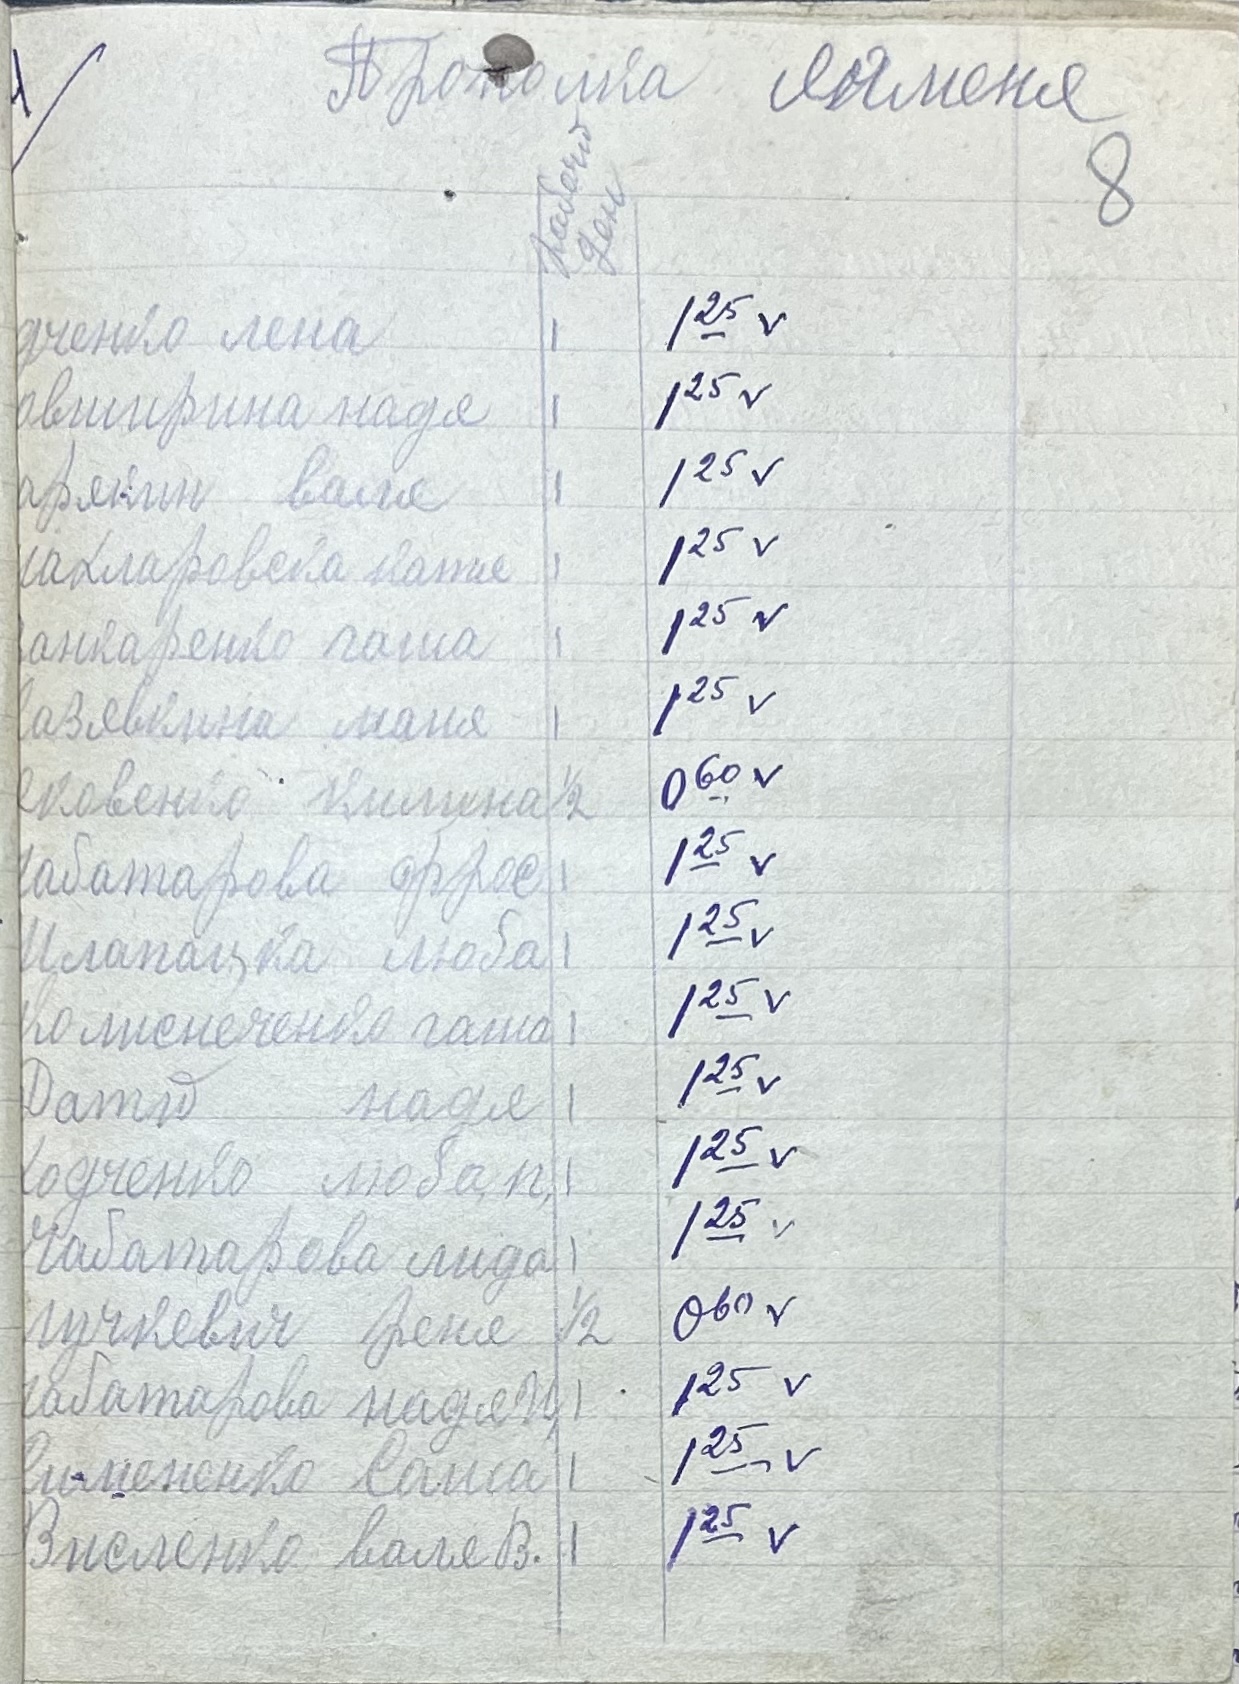 Прополка яЧменя
8
Рабочй
день
дченко лена 1 1 25 v
овширина надя 1 1 25 v
арякин валя 1 1 25 v
кларовска катя 1 1 25 v
анкаренко гаша 1 1 25 v
азявкина маня 1 1 25 v
ековенко 1/2 0 60 v
абатарова фрос 1 1 25 v
люба 1 1 25 v
колисниченко гаша 1 1 25 v
надя 1 1 25 v
одченко люба, п, 1 1 25 v
Чабатарова лида 1 1 25 v
лучкевич реня 1/2 0 60 v
абатарова надя И, 1 1 25 v
именко Саша 1 1 25 v
Висленко валя В. 1 1 25 v